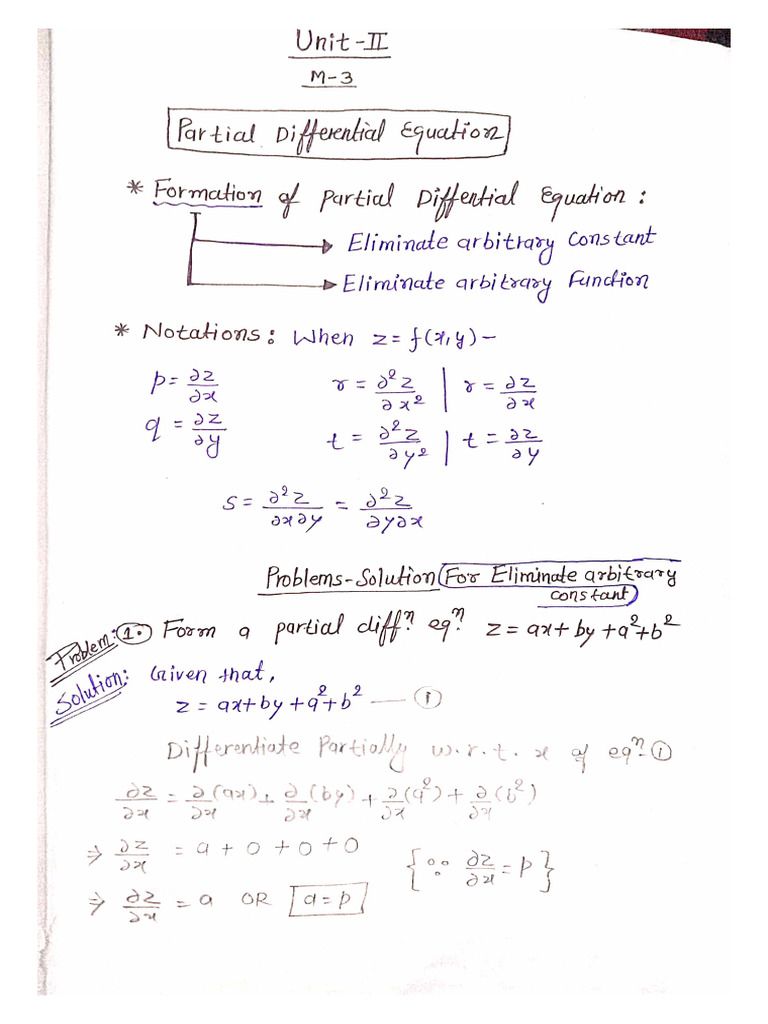 Unit-II
M-3
Partial Differential Equation
* Formation of Partial Diffential Equation :
Eliminate arbitrary Constant
Eliminate arbitrary Function
* Notations : When z = f(x,y) -
p = ∂z/∂x r = ∂²z/∂x² | r = ∂z/∂x
q = ∂z/∂y t = ∂²z/∂y² | t = ∂z/∂y
S = ∂²z/∂x∂y = ∂²z/∂y∂x
Problems-Solution (For Eliminate arbitrary
constant)
Problem: ①. Form a partial diffⁿ. eqⁿ. z = ax + by + a² + b²
Solution: Given that,
z = ax + by + a² + b² — ①
Differentiate Partially w.r.t. x of eqⁿ. ①
∂z/∂x = ∂/∂x (ax) + ∂/∂x (by) + ∂/∂x (a²) + ∂/∂x (b²)
⇒ ∂z/∂x = a + 0 + 0 + 0
{∵ ∂z/∂x = p}
⇒ ∂z/∂x = a OR a = p